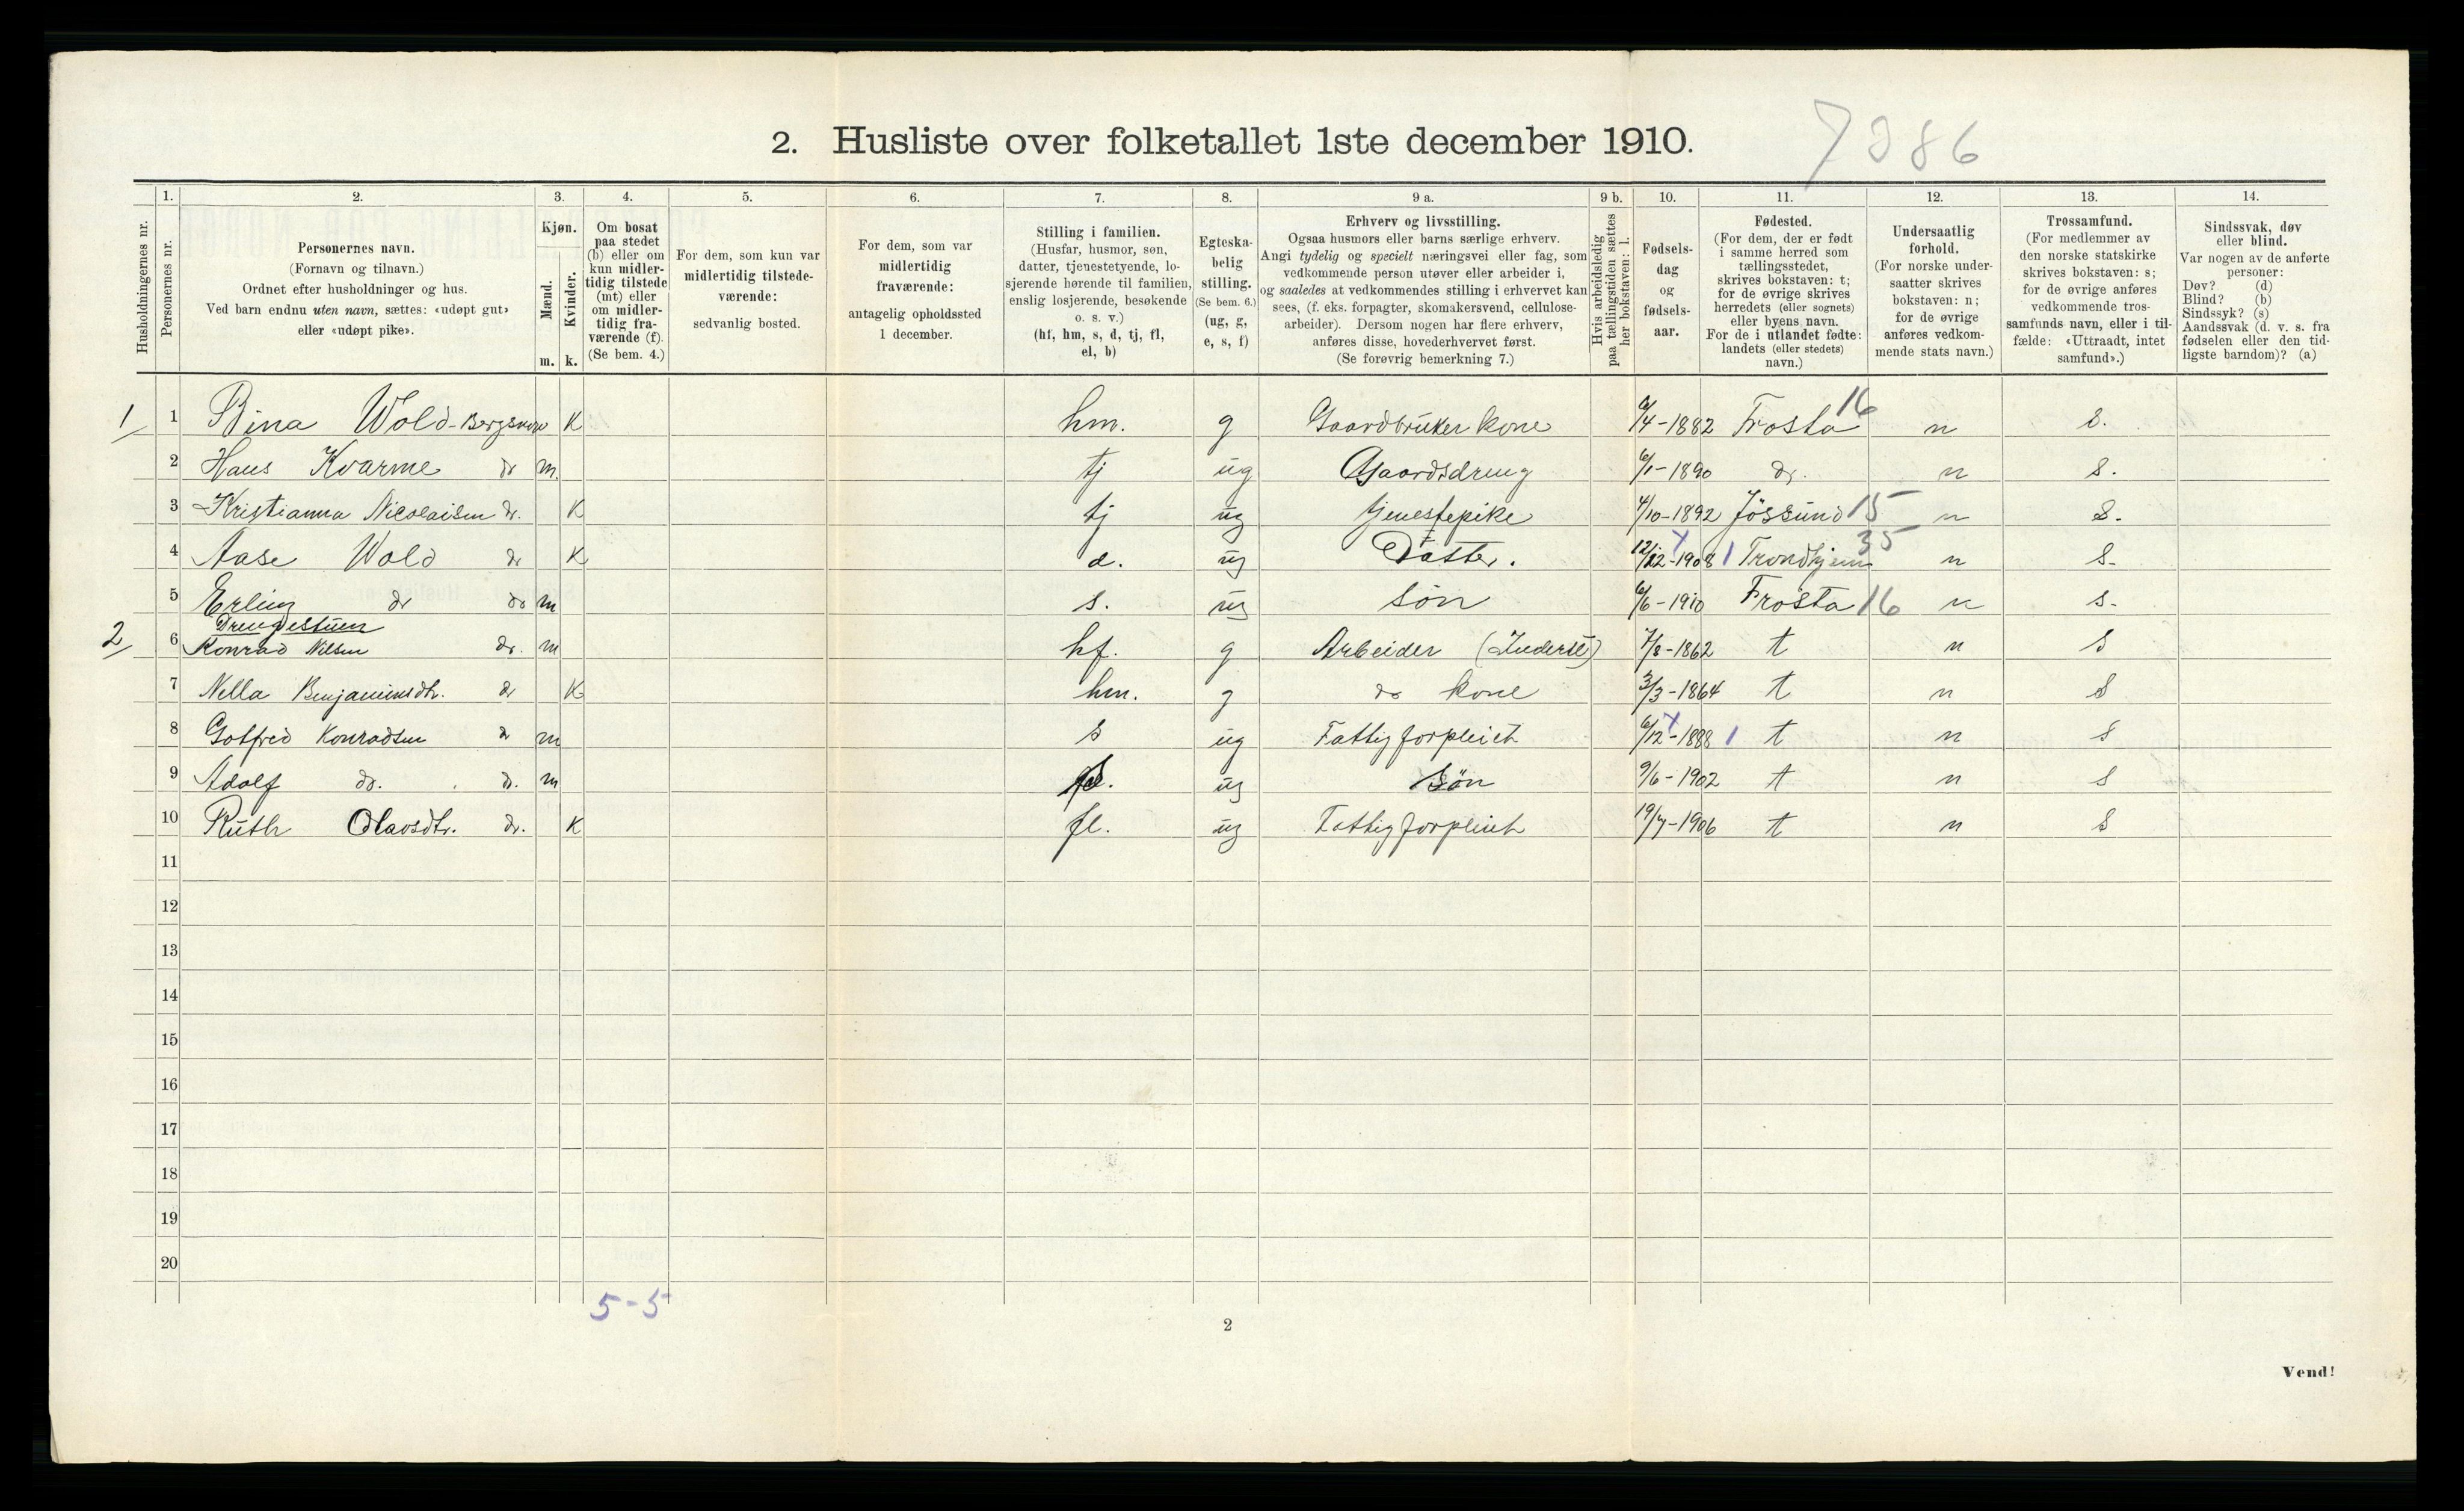 2. Husliste over folketallet 1ste december 1910.
7386
Husholdningernes nr.
1.
Personernes nr.
2.
Personernes navn.
(Fornavn og tilnavn.)
Ordnet efter husholdninger og hus.
Ved barn endnu uten navn, sættes: «udøpt gut»
eller «udøpt pike».
3.
Kjøn.
Mænd.
Kvinder.
m. k.
4.
Om bosat
paa stedet
(b) eller om
kun midler-
tidig tilstede
(mt) eller
om midler-
tidig fra-
værende (f).
(Se bem. 4.)
5.
For dem, som kun var
midlertidig tilstede-
værende:
sedvanlig bosted.
6.
For dem, som var
midlertidig
fraværende:
antagelig opholdssted
1 december.
7.
Stilling i familien.
(Husfar, husmor, søn,
datter, tjenestetyende, lo-
sjerende hørende til familien,
enslig losjerende, besøkende
o. s. v.)
(hf, hm, s, d, tj, fl,
el, b)
8.
Egteska-
belig
stilling.
(Se bem. 6.)
(ug, g,
e, s, f)
9 a.
Erhverv og livsstilling.
Ogsaa husmors eller barns særlige erhverv.
Angi tydelig og specielt næringsvei eller fag, som
vedkommende person utøver eller arbeider i,
og saaledes at vedkommendes stilling i erhvervet kan
sees, (f. eks. forpagter, skomakersvend, cellulose-
arbeider). Dersom nogen har flere erhverv,
anføres disse, hovederhvervet først.
(Se forøvrig bemerkning 7.)
9 b.
Hvis arbeidsledig
paa tællingstiden sættes
her bokstaven: l.
10.
Fødsels-
dag
og
fødsels-
aar.
11.
Fødested.
(For dem, der er født
i samme herred som
tællingsstedet,
skrives bokstaven: t;
for de øvrige skrives
herredets (eller sognets)
eller byens navn.
For de i utlandet fødte:
landets (eller stedets)
navn.)
12.
Undersaatlig
forhold.
(For norske under-
saatter skrives
bokstaven: n;
for de øvrige
anføres vedkom-
mende stats navn.)
13.
Trossamfund.
(For medlemmer av
den norske statskirke
skrives bokstaven: s;
for de øvrige anføres
vedkommende tros-
samfunds navn, eller i til-
fælde: «Uttraadt, intet
samfund».)
14.
Sindssvak, døv
eller blind.
Var nogen av de anførte
personer:
Døv? (d)
Blind? (b)
Sindssyk? (s)
Aandssvak (d. v. s. fra
fødselen eller den tid-
ligste barndom)? (a)
1 1 Bina Wold- K hm. g Gaardbruker kone 6/4-1882 Frosta 16 n s.
2 Hans Kvarme do m. tj ug Gaardsdreng 6/1-1890 do. n s.
3 Kristianna Nicolaisen do. K tj ug tjenestepike 4/10-1892 Jössund 15 n s.
4 Aase Wold do K d. ug Datter. 12/12-1908 1 Trondhjem 35 n s.
5 Erling do do m s. ug Søn 6/6-1910 Frosta 16 n s.
Drengestuen
2 6 Konrad Nilsen do. m hf. g Arbeider (Inderst) 7/8-1862 t n s
7 Nella Benjaminsdtr. do K hm. g do kone 3/3-1864 t n s
8 Gotfred Konradsen do m s ug Fattigforpleiet 6/12-1888 1 t n s
9 Adolf do. do. m s. ug Søn 9/6-1902 t n s
10 Ruth Olavsdtr. do. K fl. ug Fattigforpleiet 19/7-1906 t n s
11
12
13
14
15
16
17
18
19
20
5-5
2
Vend!